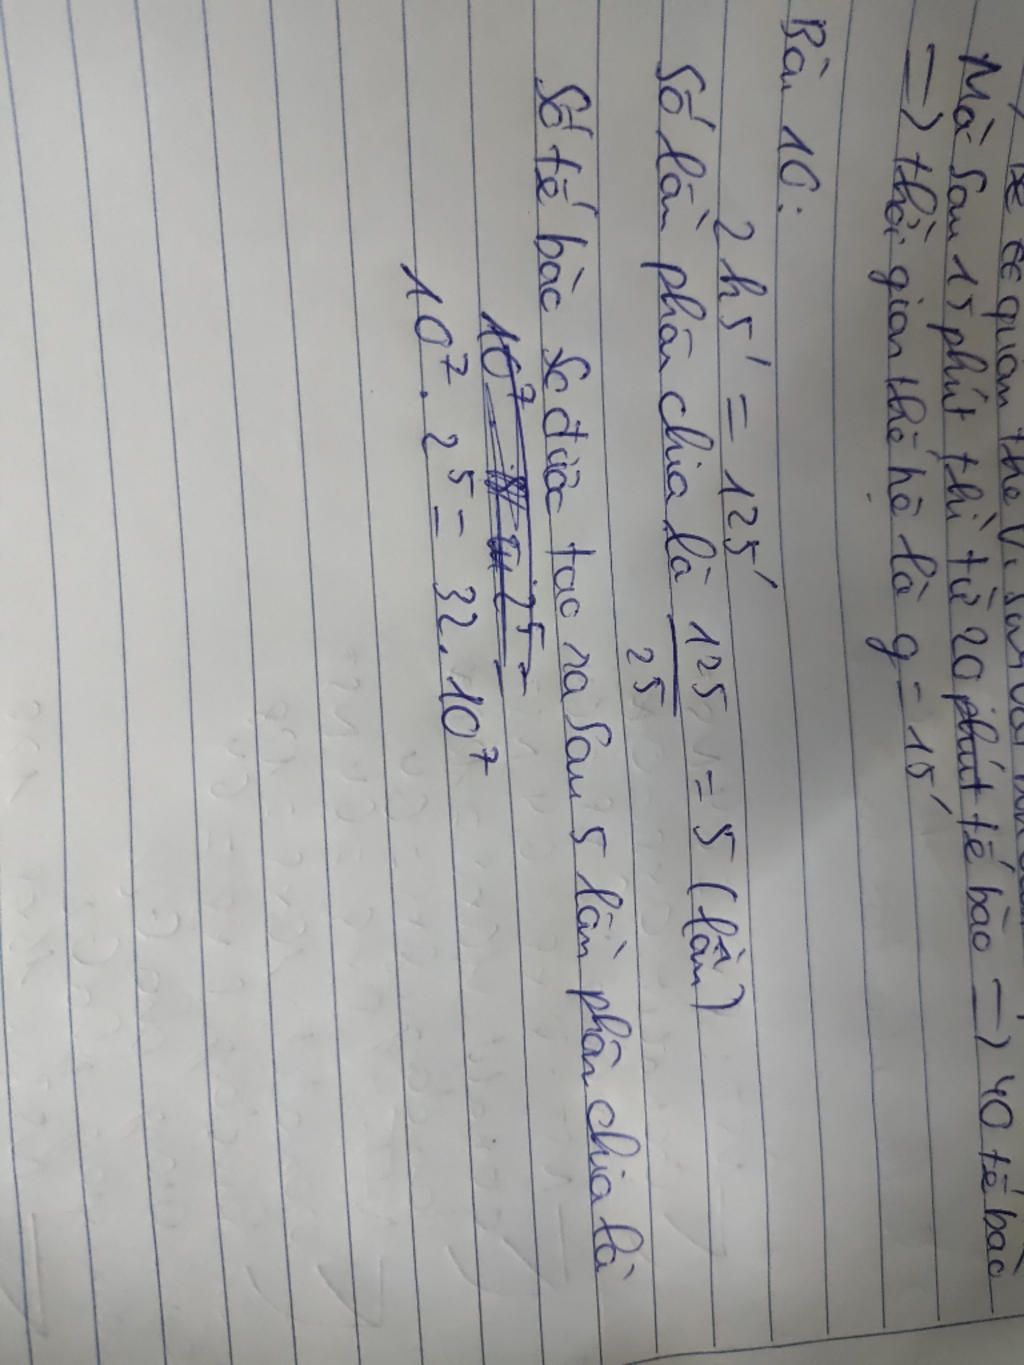 Mà sau 15 phút thì từ 20 phút tế bào => 40 tế bào
=> thời gian thế hệ là g = 15'
Bài 10:
2h5' = 125'
Số lần phân chia là 125/25 = 5 (lần)
Số tế bào sẽ được tạo ra sau 5 lần phân chia là
10⁷ . 2⁵ = 32.10⁷